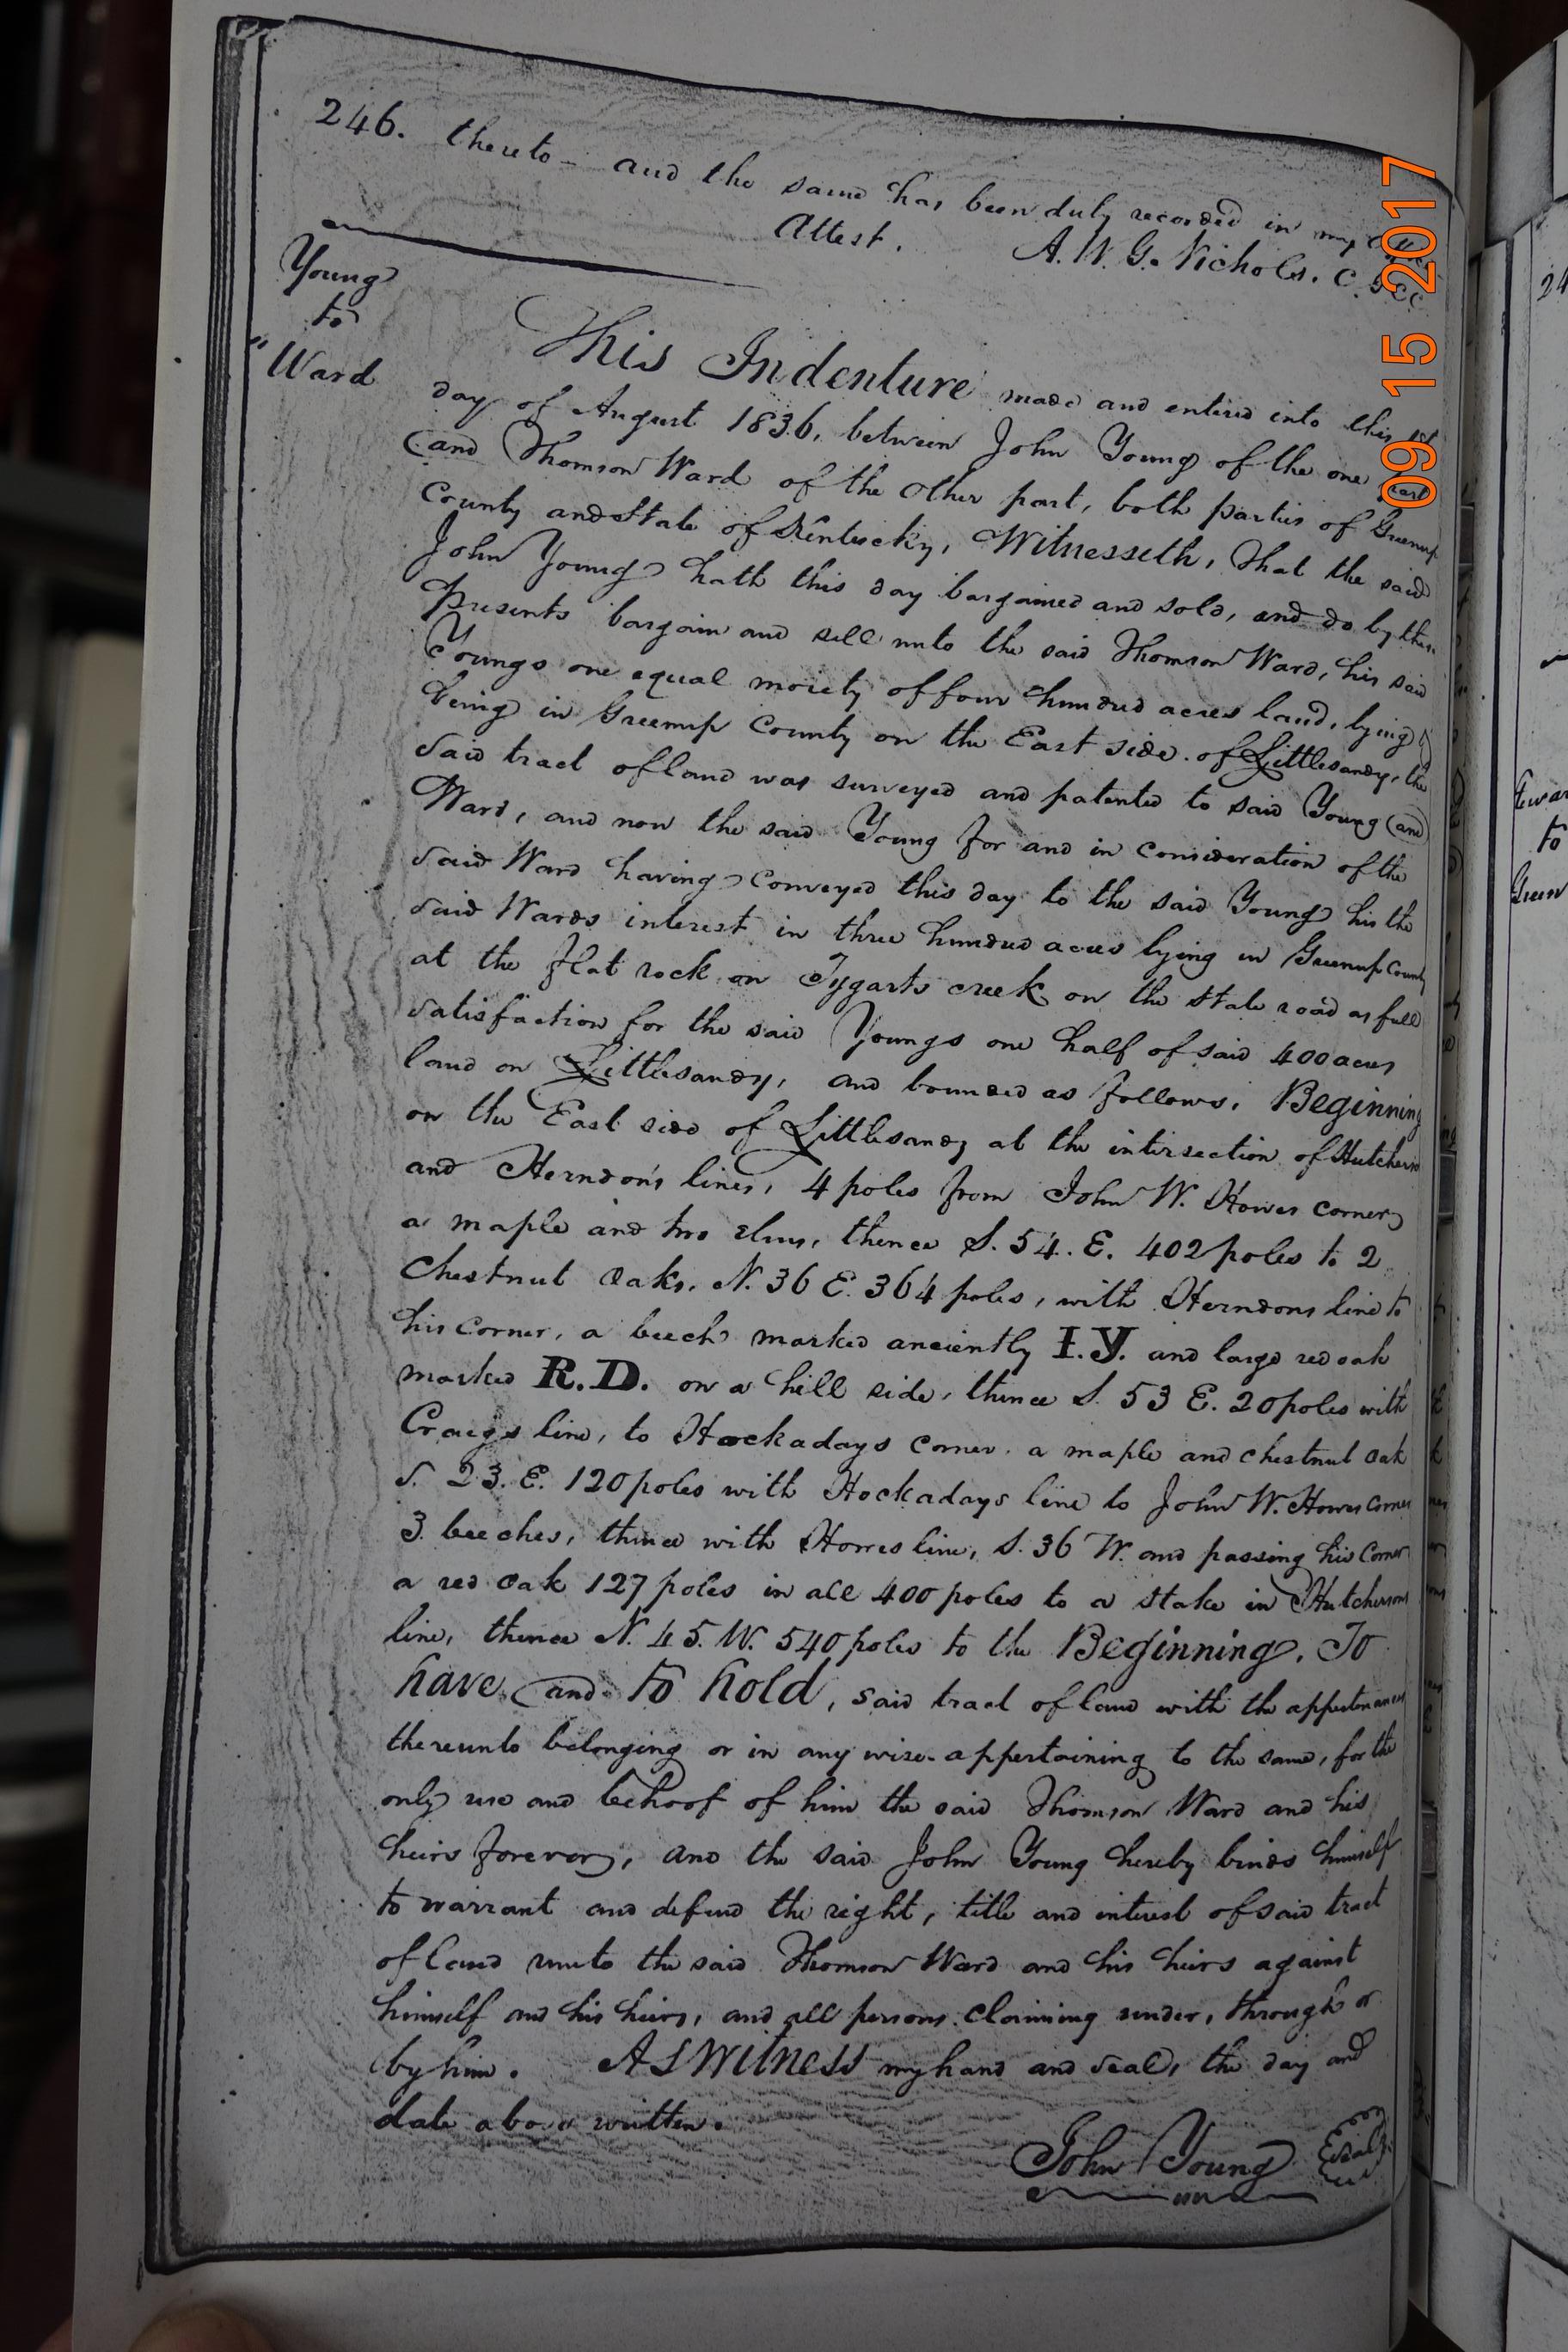 246. thereto - and the same has been duly recorded in my
Attest. A. W. G. Nichols. C.
Young
to
Ward
This Indenture made and entered into this 1st
day of August 1836, between John Young of the one part
and Thomson Ward of the other part, both parties of Greenup
County and State of Kentucky, Witnesseth, That the said
John Young hath this day bargained and sold, and do by these
presents bargain and sell unto the said Thomson Ward, his said
Youngs one equal moiety of four hundred acres land, lying &
being in Greenup County on the East side of Littlesandy, the
said tract of land was surveyed and patented to said Young and
Ward, and now the said Young for and in consideration of the
said Ward having conveyed this day to the said Young his the
said Wards interest in three hundred acres lying in Greenup County
at the flat rock on Tygarts creek on the State road as full
satisfaction for the said Youngs one half of said 400 acres
land on Littlesandy, and bounded as follows, Beginning
on the East side of Littlesandy at the intersection of Hutcherson
and Herndon's lines, 4 poles from John W. Howes corner
a maple and two elms, thence S. 54. E. 402 poles to 2
Chestnut Oaks. N. 36 E. 364 poles, with Herndons line to
his corner, a beech marked anciently I.Y. and large red oak
marked R.D. on a hill side, thence S. 53 E. 20 poles with
Craigs line, to Hockadays corner. a maple and chestnut oak
S. 23. E. 120 poles with Hockadays line to John W. Howes Corner
3 beeches, thence with Howes line, S. 36 W. and passing his Corner
a red oak 127 poles in all 400 poles to a stake in Hutchersons
line, thence N. 45. W. 540 poles to the Beginning. To
have and to hold, said tract of land with the appertenances
thereunto belonging or in any wise appertaining to the same, for the
only use and behoof of him the said Thomson Ward and his
heirs forever, and the said John Young hereby binds himself
to warrant and defend the right, title and interest of said tract
of land unto the said Thomson Ward and his heirs against
himself and his heirs, and all persons claiming under, through or
by him. As Witness my hand and seal, the day and
date above written.
John Young Seal
09 15 2017
24
to
Green